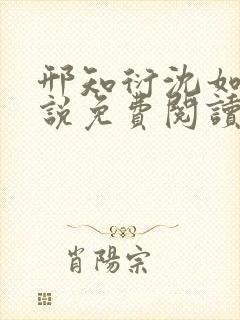 邢知衍沈如
說免費閱讀
肖陽宗